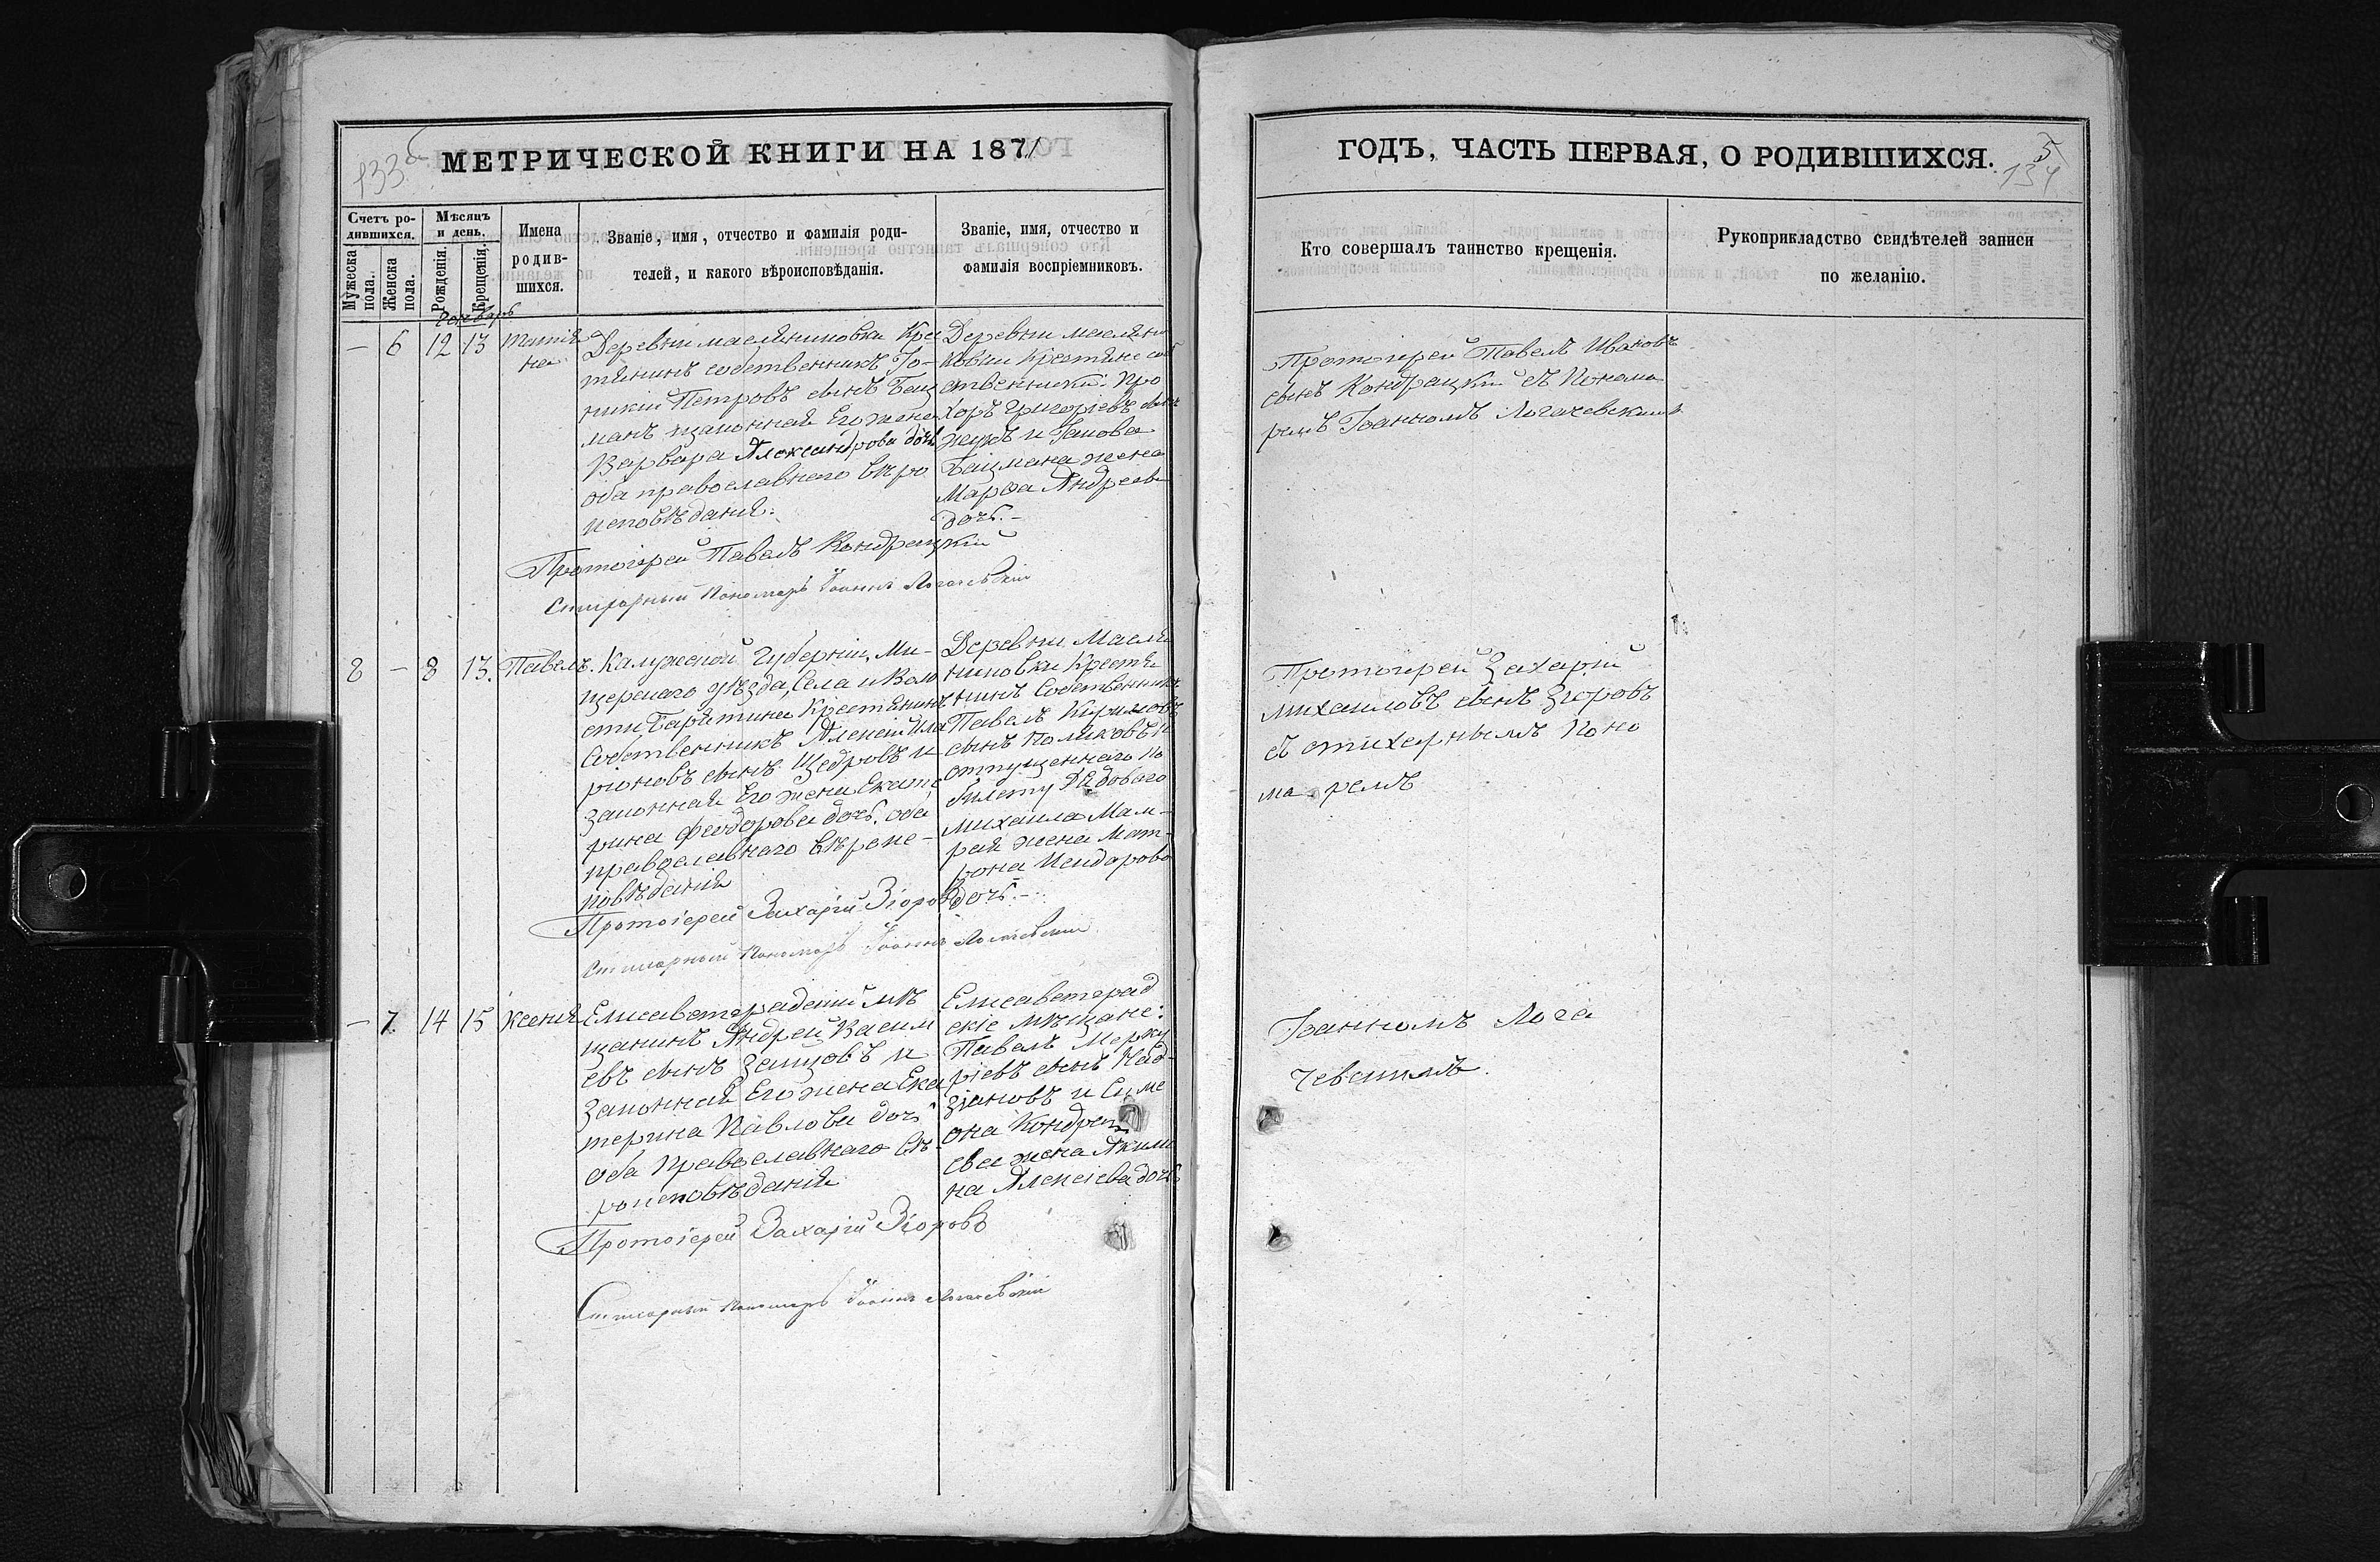 133 об
МЕТРИЧЕСКОЙ КНИГИ НА 1871
ГОДЪ, ЧАСТЬ ПЕРВАЯ, О РОДИВШИХСЯ.
5
134
Счетъ ро-
дившихся.
Мужеска
пола.
Женска
пола.
Мѣсяцъ
и день.
Рожденія.
Крещенія.
Имена
родив-
шихся.
Званіе, имя, отчество и фамилія роди-
телей, и какого вѣроисповѣданія.
Званіе, имя, отчество и
фамилія воспріемниковъ.
Кто совершалъ таинство крещенія.
Рукоприкладство свидѣтелей записи
по желанію.
Генварь
— 6 12 13
Татія
на
Деревни Масляниковки Крес
тянинъ собственникъ Іо-
Петровъ сынъ Бац
манъ законная Его жена
Варвара Александрова дочь
оба православнаго вѣро
исповѣданія.
Деревни Маслени
ковки Крестяне соб
ственники: Про
хоръ Григоріевъ сынъ
и
Бацмана жена
Марѳа Андреева
дочь.—
Протоіерей Павелъ Ивановъ
сынъ Кондрацкій съ Понома
ремъ Іоанномъ Логачевскимъ
Протоіерей Павелъ Кондрацкій
Стихарный Пономарь Іоаннъ Логачевскій
8 — 8 13.
Павелъ.
Калужской Губерніи, Ми-
щерскаго уѣзда, Села и Воло
сти Барятина Крестянинъ
Собственникъ Алексій Ила
ріоновъ сынъ Щедровъ и
законная Его жена Екате
рина Феодорова дочь. оба
православнаго вѣроис-
повѣданія
Деревни Масля
никовки Крестя
нинъ Собственникъ
Павелъ
сынъ Поляковъ и
отпущеннаго по
билету Рядоваго
Михаила Мам-
рая жена Мат-
рона
дочь.—
Протоіерей Захарій
Михаиловъ сынъ Згоровъ
съ стихарнымъ Поно
маремъ
Протоіерей Захарій Згоровъ
Стихарный Пономарь Іоаннъ Логачевскій
— 7. 14 15
Ксенія
Елисаветградскій мѣ
щанинъ Андрей Васил
евъ сынъ Зайцовъ и
Законная Его жена Ека
терина Павлова дочь
Оба Православнаго Вѣ-
роисповѣданія
Елисаветград
скіе мѣщане:
Павелъ Мерку
ріевъ сынъ Над-
зіановъ и Симе
она Кондрат
ева жена Акили
на Алексіева дочь
Іоанномъ Лога
чевскимъ.
Протоіерей Захарій Згоровъ
Стихарный Пономарь Іоаннъ Логачевскій